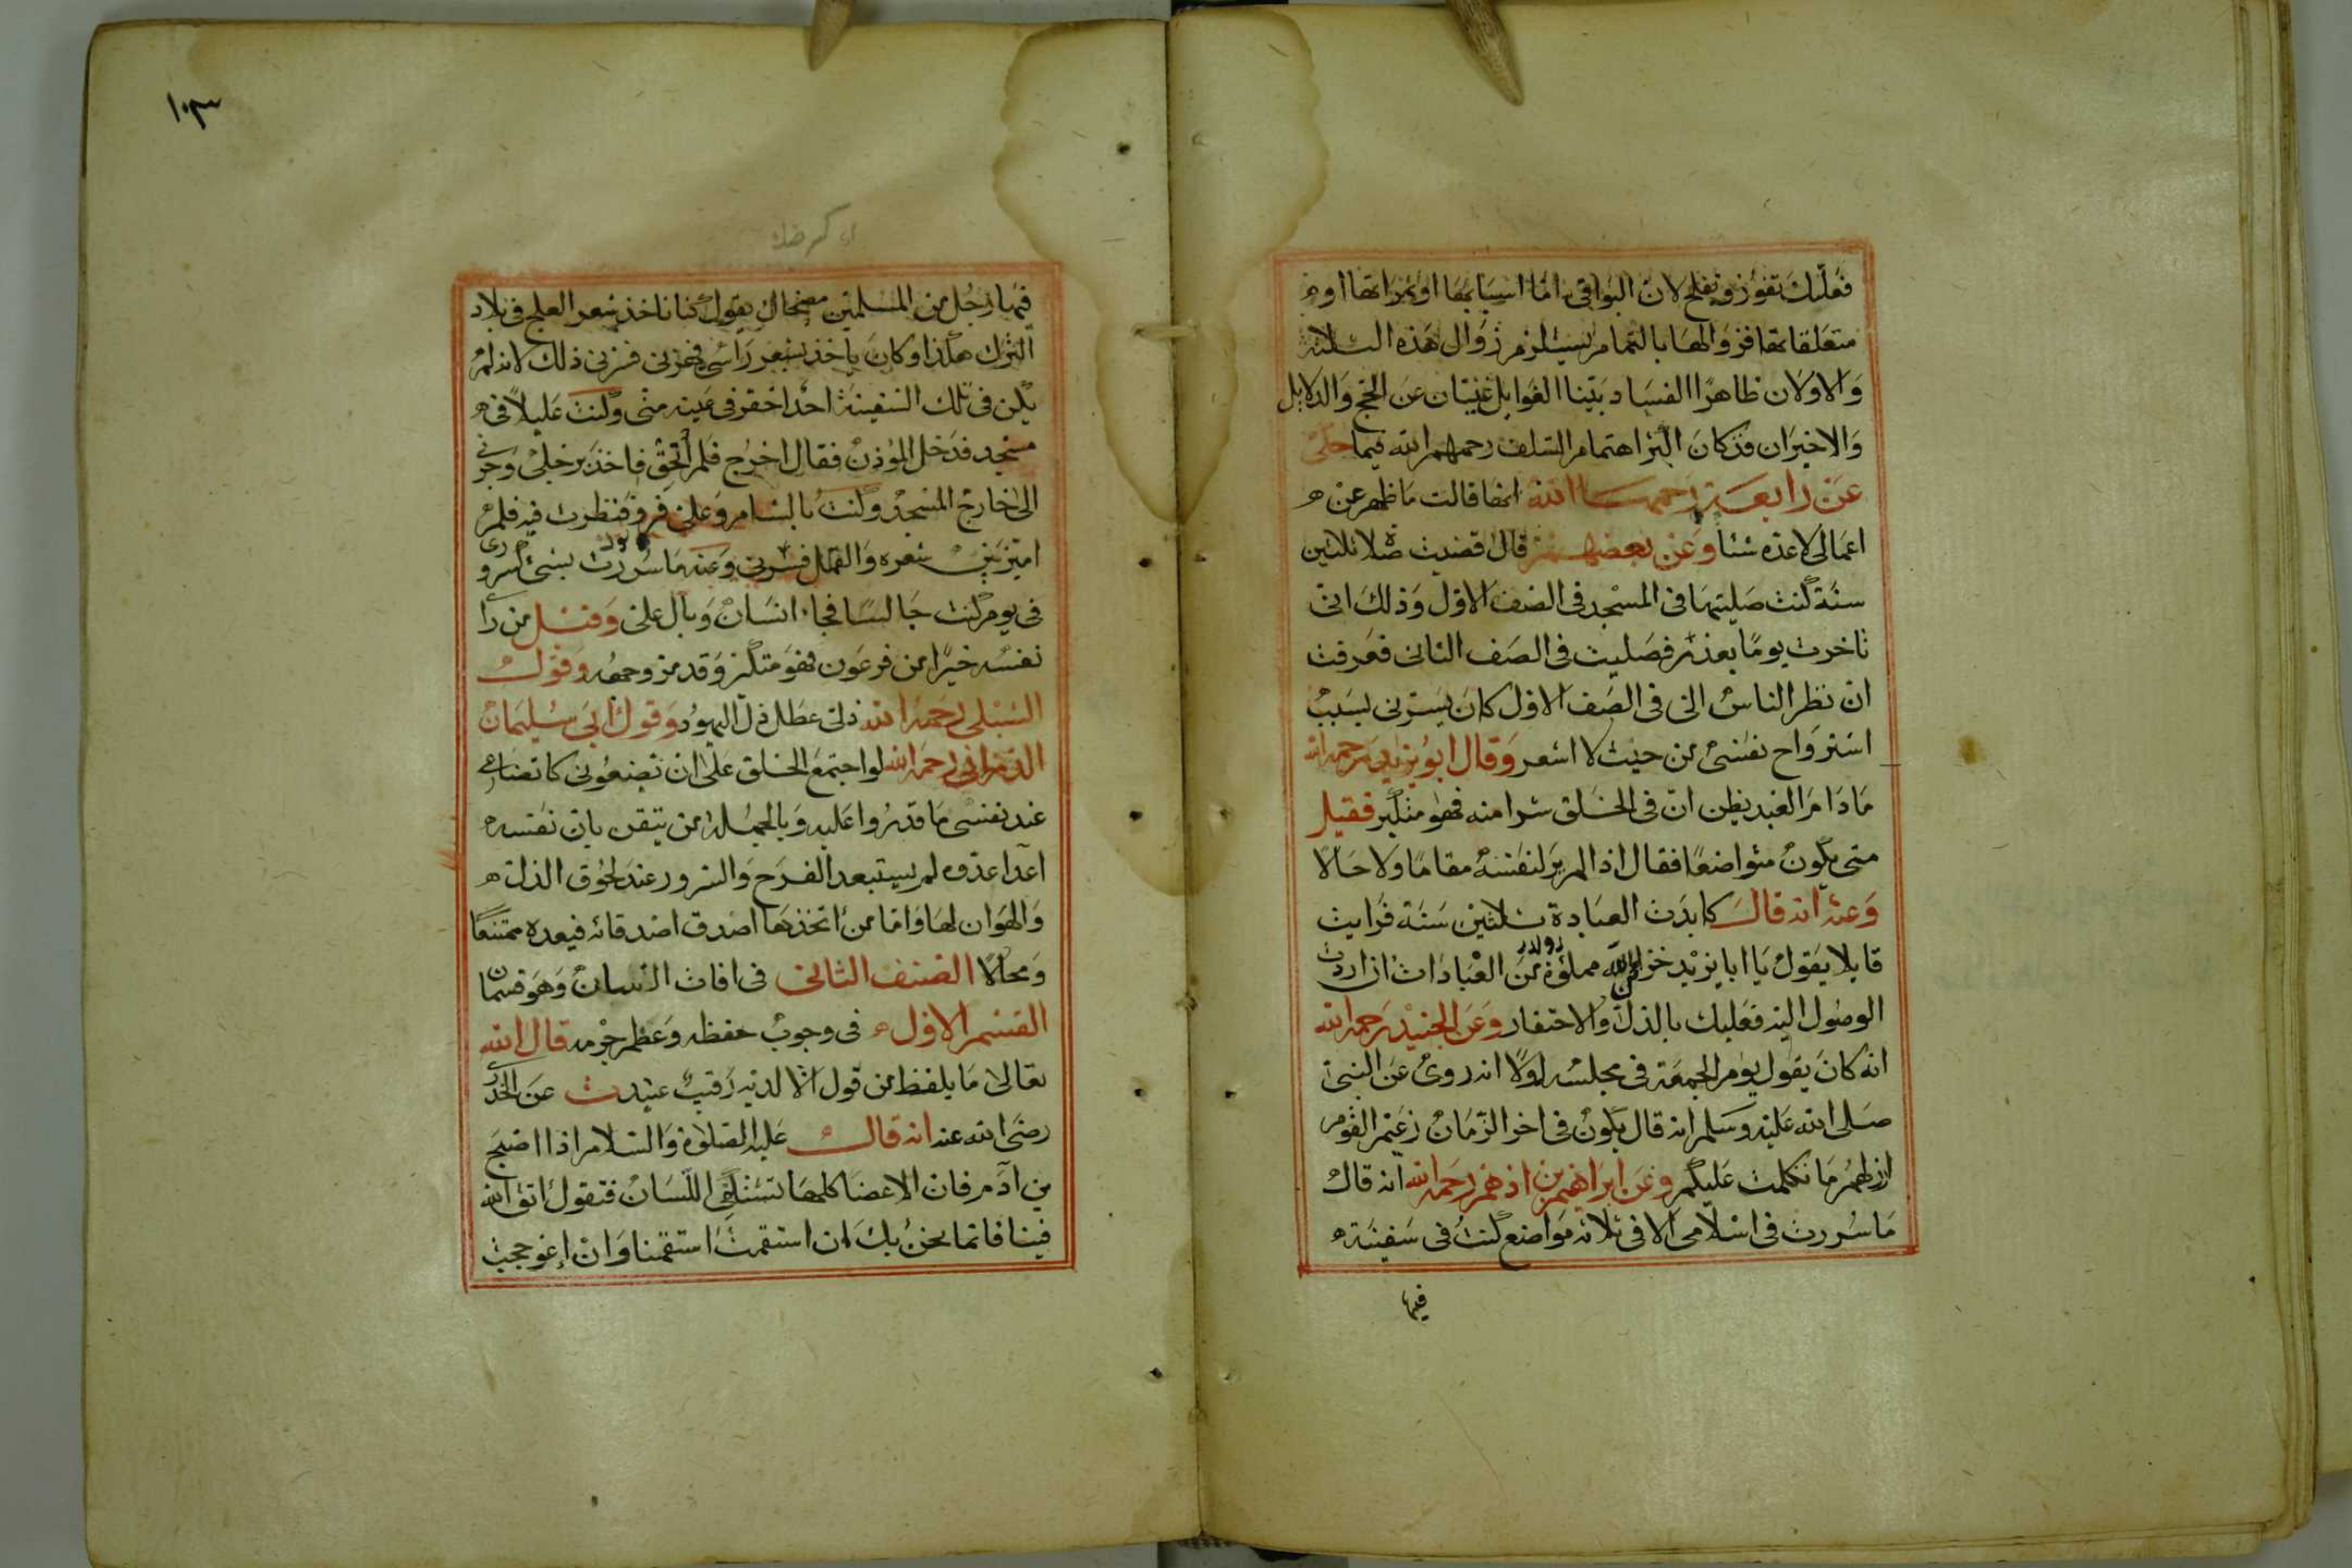 فعلك تفوز وتفلح لان البواقي اما اسبابها او ثمراتها او
متعلقاتها فزوالها بالتمام يستلزم زوال هذه الثلاثة
والاولان ظاهرا الفساد بينا الغوايل غنيتان عن الحجج والدلايل
والاخيران قد كان اكثر اهتمام السلف رحمهم الله فيهما حكى
عن رابعة رحمها الله انها قالت ما ظهر عن
اعمالى لا اعده شئا وعن بعضهم قال قضيت صلاة ثلثين
سنة كنت صليتها فى المسجد فى الصف الاول وذلك انى
تاخرت يوما بعذر فصليت فى الصف الثانى فعرفت
ان نظر الناس الى فى الصف الاول كان يسرنى بسبب
استرواح نفسى من حيث لا اشعر وقال ابو يزيد رحمه الله
ما دام العبد يظن ان فى الخلق شرا منه فهو متكبر فقيل
متى يكون متواضعا فقال اذا لم ير لنفسه مقاما ولا حالا
وعنه انه قال كابدت العبادة ثلاثين سنة فرايت
قايلا يقول يا ابا يزيد خزائنه مملوة من العبادات ان اردت
الوصول اليه فعليك بالذل والاحتقار وعن الجنيد رحمه الله
انه كان يقول يوم الجمعة فى مجلسه لولا انه روى عن النبى
صلى الله عليه وسلم انه قال يكون فى اخر الزمان زعيم القوم
ارذلهم ما تكلمت عليكم وعن ابراهيم بن ادهم رحمه الله انه قال
ما سررت فى اسلامى الا فى ثلاثة مواضع كنت فى سفينة
فيها
١٠٣
فيها رجل من المسلمين مضحاك يقول كنا ناخذ بشعر العلج فى بلاد
الترك هكذا وكان ياخذ بشعر راسى فيهزنى فسرنى ذلك لانه لم
يكن فى تلك السفينة احد احقر فى عينه منى وكنت عليلا فى
مسجد فدخل المؤذن فقال اخرج فلم اطق فاخذ برجلى وجرنى
الى خارج المسجد وكنت بالشام وعلى فرو فنظرت فيه فلم
اميز بين شعره والقمل فسرنى وعنه ما سررت بشئ كسرورى
فى يوم كنت جالسا فجاء انسان وبال على وقيل من راى
نفسه خيرا من فرعون فهو متكبر وقد مر وجهه وقول
الشبلى رحمه الله ذلى عطل ذل اليهود وقول ابى سليمان
الدرانى رحمه الله لو اجتمع الخلق على ان تضعونى كاتضاعى
عند نفسى ما قدروا عليه وبالجملة من تيقن بان نفسه
اعدا عدوه لم يستبعد الفرح والسرور عند لحوق الذل
والهوان لها واما من اتخذها اصدق اصدقائه فيعده ممتنعا
ومحالا الصنف الثانى فى افات اللسان وهو قسمان
القسم الاول فى وجوب حفظه وعظم جرمه قال الله
تعالى ما يلفظ من قول الا لديه رقيب عتيد ت عن الخدرى
رضى الله عنه انه قال عليه الصلوة والسلام اذا اصبح
بن ادم فان الاعضا كلها تستكفى اللسان فتقول اتق الله
فينا فانما نحن بك ان استقمت استقمنا وان اعوججت